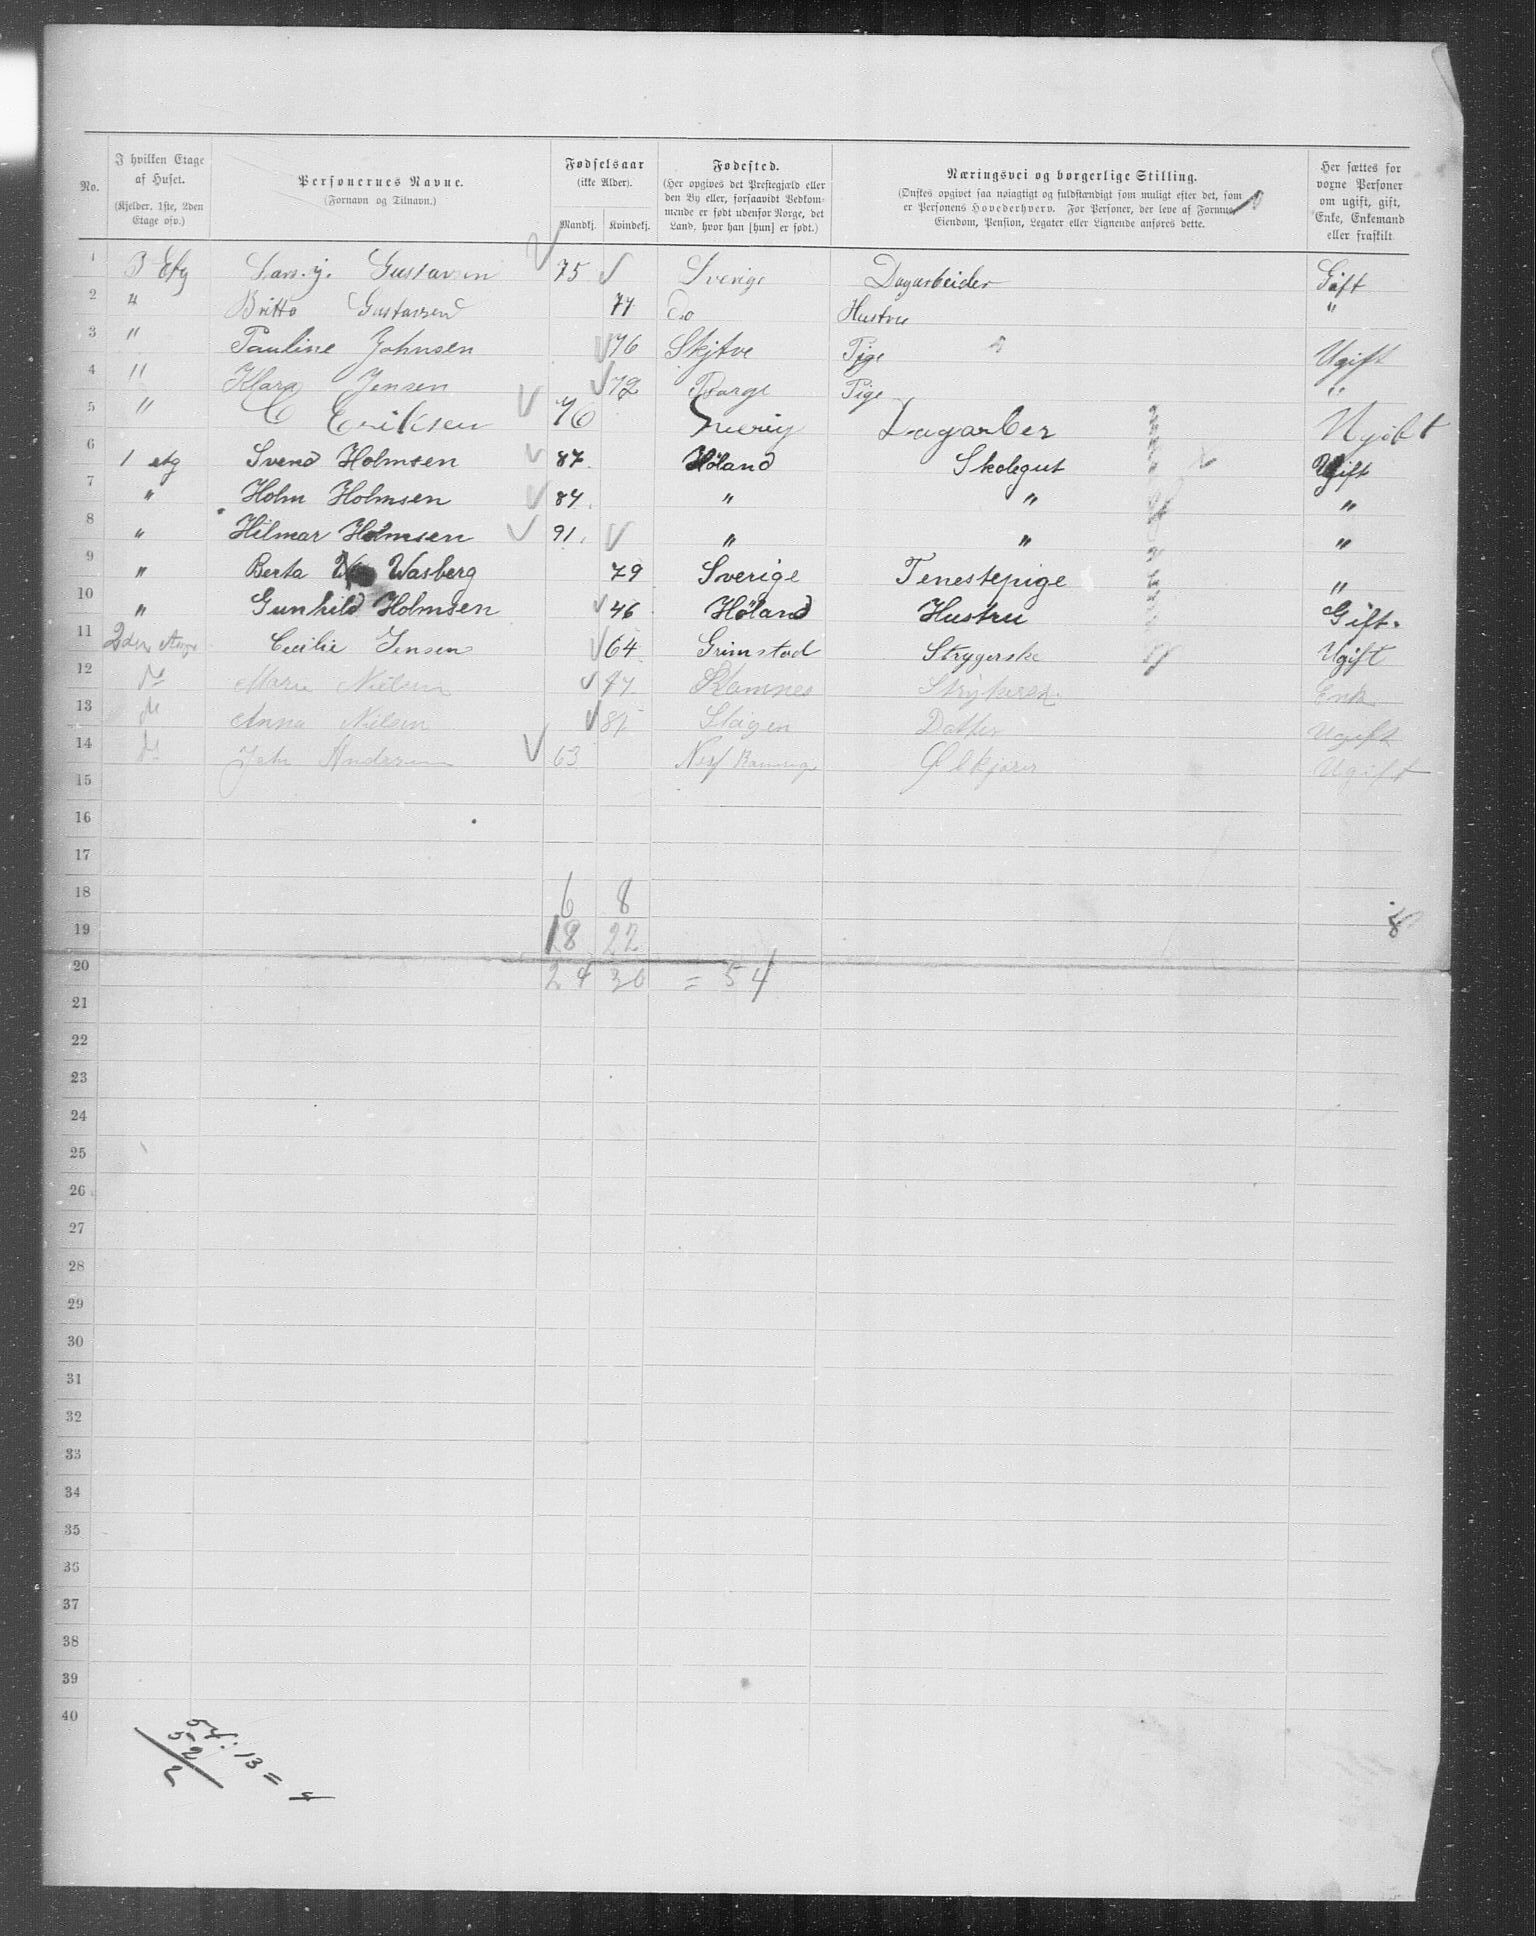 No.
I hvilken Etage af Huset. (Kjelder, 1ste, 2den Etage osv.)
Personernes Navne. (Fornavn og Tilnavn.)
Fødselsaar (ikke Alder). Mandkj. Kvindekj.
Fødested. (Her opgives det Prestegjæld eller den By eller, forsaavidt Vedkommende er født udenfor Norge, det Land, hvor han [hun] er født.)
Næringsvei og borgerlige Stilling. (Ønskes opgivet saa nøiagtigt og fuldstændigt som muligt efter det, som er Personens Hovederhverv. For Personer, der leve af Formue, Eiendom, Pension, Legater eller Lignende anføres dette.)
Her sættes for voxne Personer om ugift, gift, Enke, Enkemand eller fraskilt.
1 3 Etg Gustavsen 75 Sverige Dagarbeider Gift
2 " Britto Gustavsen 77 Do Hustru "
3 " Pauline Johnsen 76 Skjtve Pige Ugift
4 " Klara Jensen 72 Borge Pige "
5 " C Eriksen 76 Sverig Dagarber Ugift
6 1 etg Svend Holmsen 87. Høland Skolegut Ugift
7 " Holm Holmsen 84. " " "
8 " Hilmar Holmsen 91. " " "
9 " Berta Wasberg 79 Sverige Tenestepige "
10 " Gunhild Holmsen 46 Høland Hustru Gift.
11 2den Cecilie Jensen 64 Grimstad Strygerske Ugift
12 do Marie Nielsen 47 Enke
13 do Anna Nilsen Datter Ugift
14 do Andersen 63 Ølkjører Ugift
15
16
17
18 6 8
19 18 22
20 24 30 = 54
21
22
23
24
25
26
27
28
29
30
31
32
33
34
35
36
37
38
39
40
54 : 13 = 4
52
2